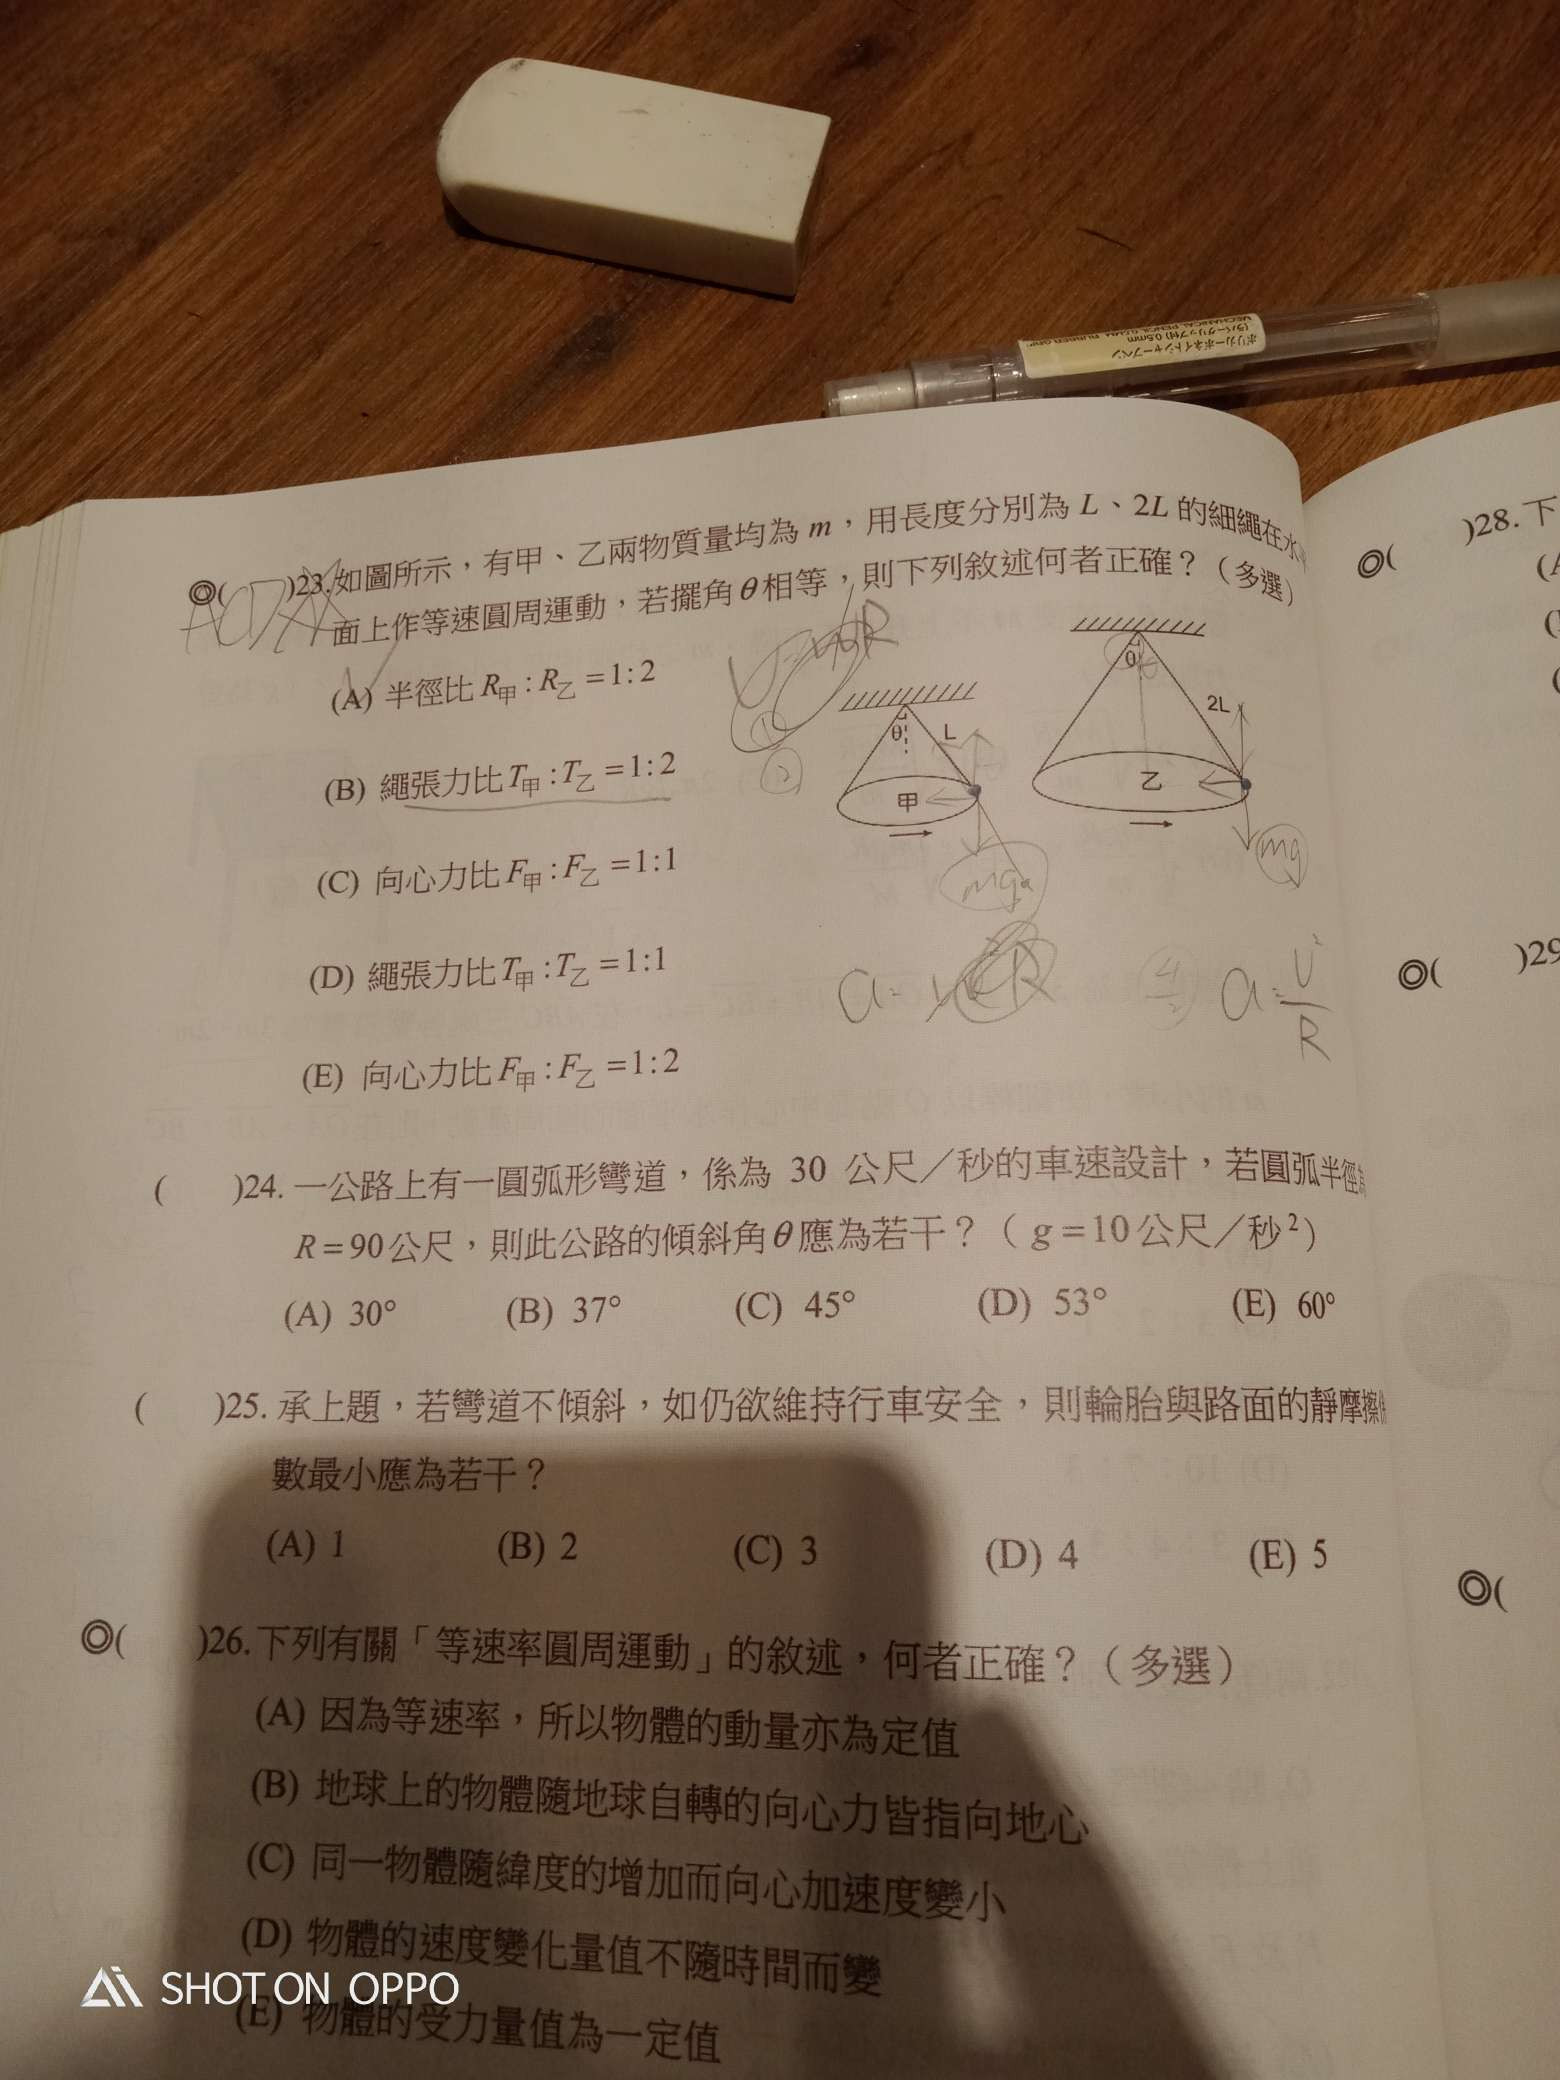 ポリカーボネイトシャープペン
(ラバーグリップ付) 0.5mm
◎( )23.如圖所示，有甲、乙兩物質量均為 m，用長度分別為 L、2L 的細繩在水
面上作等速圓周運動，若擺角θ相等，則下列敘述何者正確？（多選）
(A) 半徑比 R甲 : R乙 =1:2
(B) 繩張力比T甲 :T乙 =1:2
(C) 向心力比 F甲 : F乙 =1:1
(D) 繩張力比T甲 :T乙 =1:1
(E) 向心力比 F甲 : F乙 =1:2
θ L 甲
θ 2L 乙
mg
mg
a = R
a = U² / R
( )24. 一公路上有一圓弧形彎道，係為 30 公尺／秒的車速設計，若圓弧半徑為
R=90公尺，則此公路的傾斜角θ應為若干？（ g=10公尺／秒²）
(A) 30° (B) 37° (C) 45° (D) 53° (E) 60°
( )25. 承上題，若彎道不傾斜，如仍欲維持行車安全，則輪胎與路面的靜摩擦係
數最小應為若干？
(A) 1 (B) 2 (C) 3 (D) 4 (E) 5
◎( )26.下列有關「等速率圓周運動」的敘述，何者正確？（多選）
(A) 因為等速率，所以物體的動量亦為定值
(B) 地球上的物體隨地球自轉的向心力皆指向地心
(C) 同一物體隨緯度的增加而向心加速度變小
(D) 物體的速度變化量值不隨時間而變
(E) 物體的受力量值為一定值
◎( )28.下
◎( )29
◎(
SHOT ON OPPO